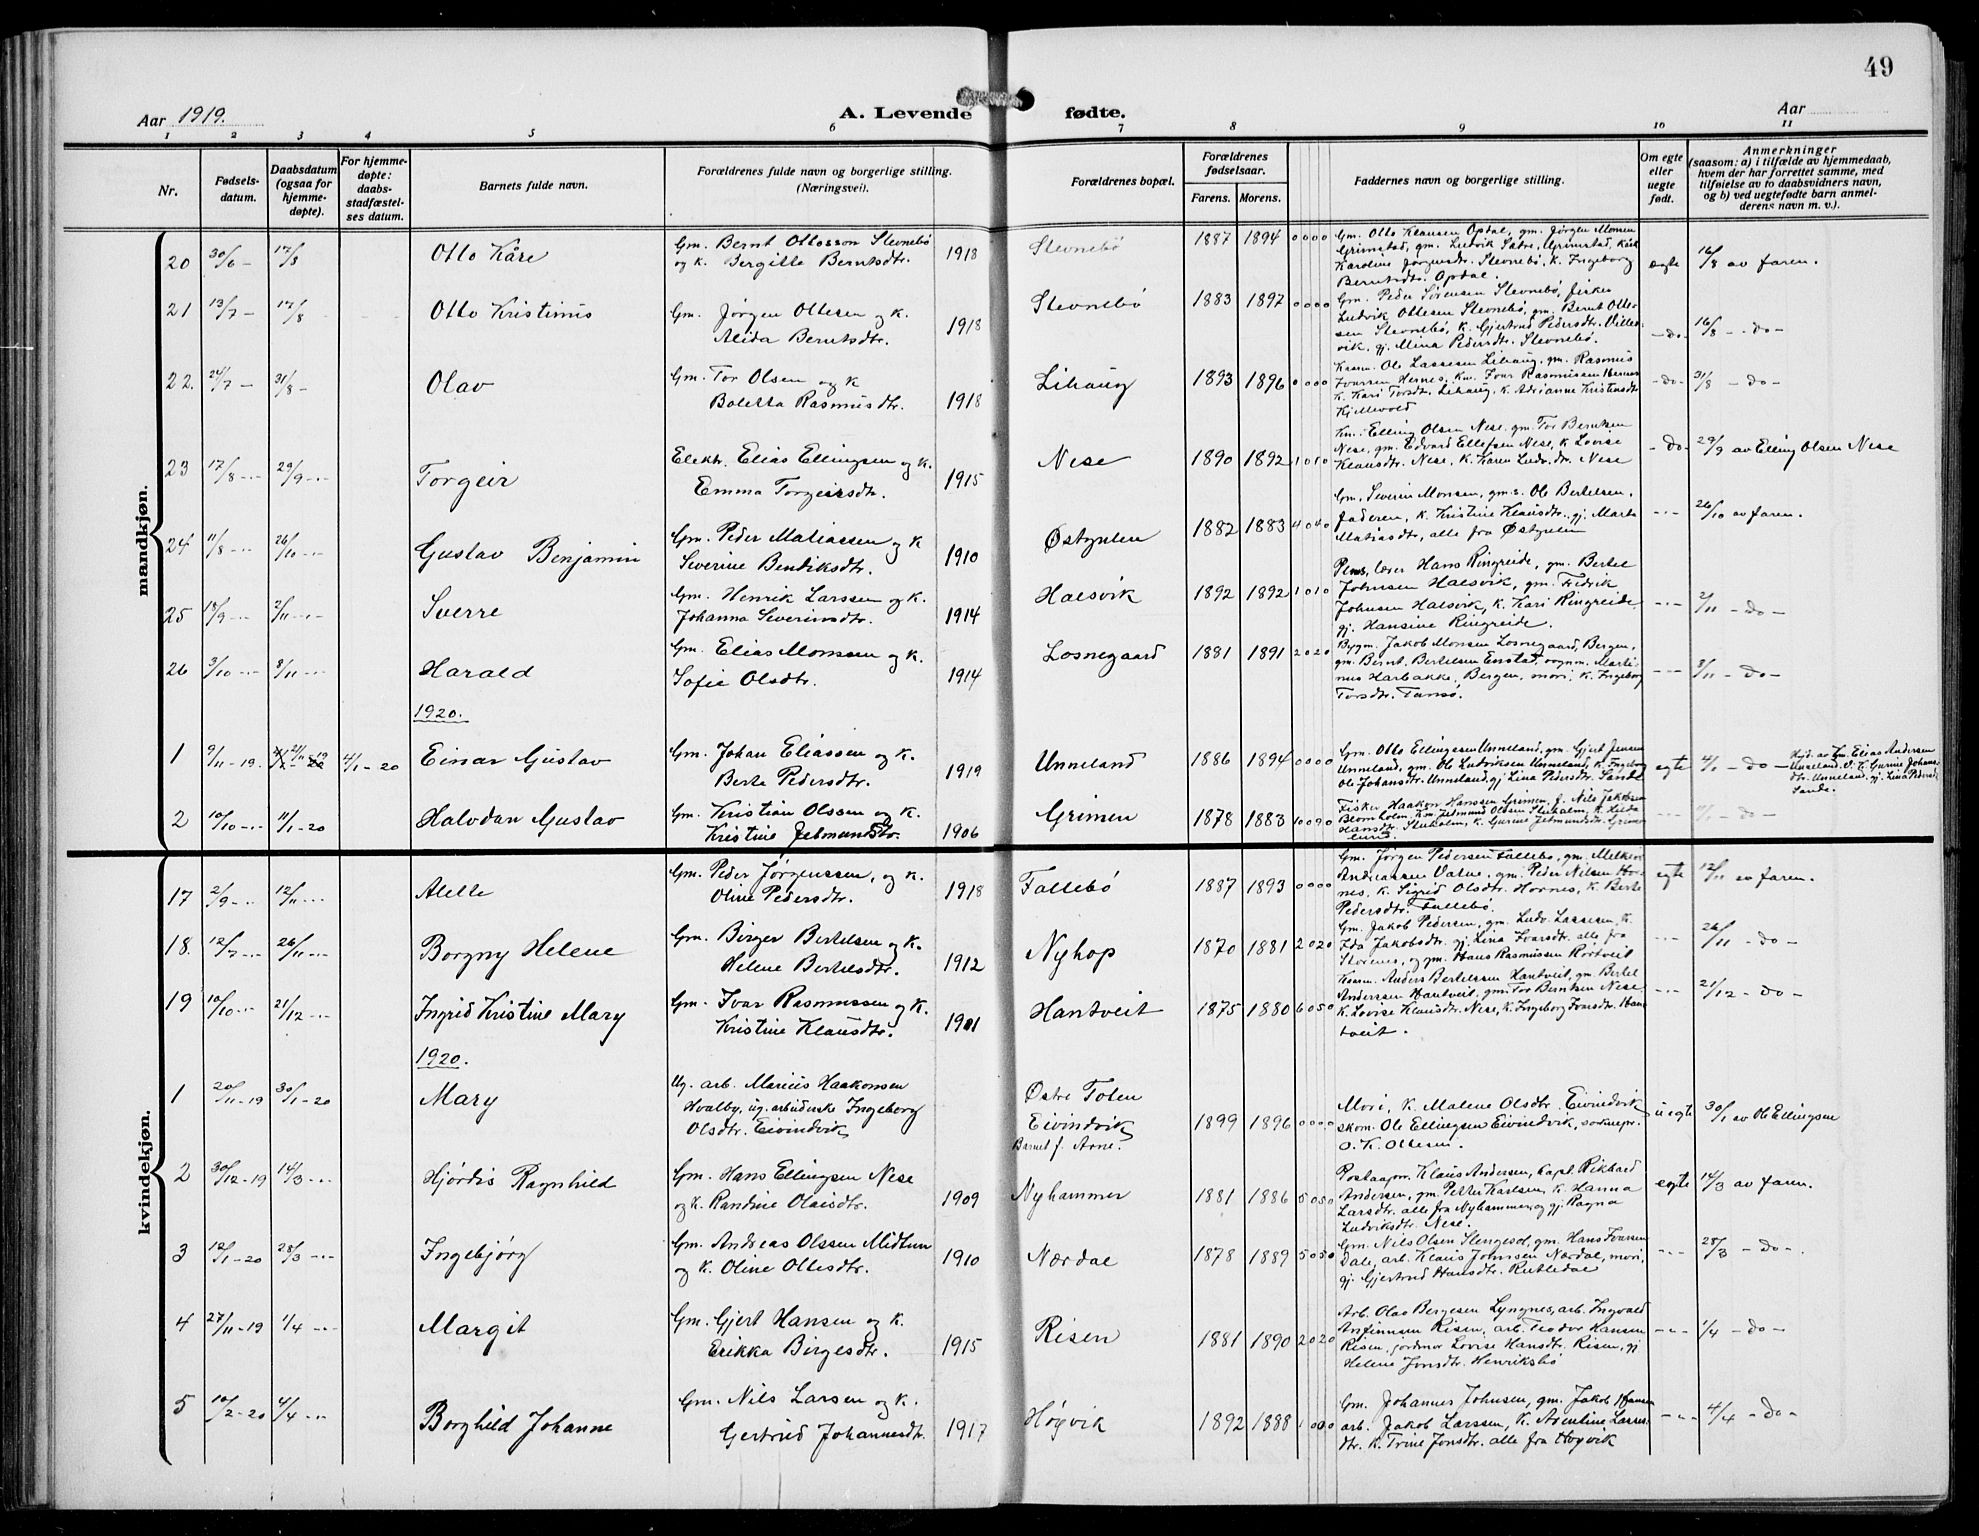 49
Aar 1919.
A. Levende fødte.
Aar
1 2 3 4 5 6 7 8 9 10 11
Nr.
Fødsels-
datum.
Daabsdatum
(ogsaa for
hjemme-
døpte).
For hjemme-
døpte:
daabs-
stadfæstel-
ses datum.
Barnets fulde navn.
Forældrenes fulde navn og borgerlige stilling.
(Næringsvei).
Forældrenes bopæl.
Forældrenes
fødselsaar.
Farens. Morens.
Faddernes navn og borgerlige stilling.
Om egte
eller
uegte
født.
Anmerkninger
(saasom: a) i tilfælde av hjemmedaab,
hvem der har forrettet samme, med
tilføielse av to daabsvidners navn,
og b) ved uegtefødte barn anmel-
derens navn m. v.).
mandkjøn.
20 30/6 - 17/8 Otto Kåre
Gm. Bernt Ottosson Stevnebø
og k. Bergitte Berntsdtr. 1918
Stevnebø 1887 1894 0 0 0 0
Gm. Otto Klausen Opdal, gm. Jørgen Monsen
Grimstad, gm. Ludvik Sætre, Grimstad, k.
Karoline Jørgensdtr. Stevnebø, k. Ingeborg
Berntsdtr. Opdal.
egte 16/8 av faren.
21 13/7 - 17/8 Otto Kristinus
Gm. Jørgen Ottesen og k.
Alida Berntsdtr. 1918
Stevnebø 1883 1897 0 0 0 0
Gm. Peder Sørensen Stevnebø, fisker
Ludvik Ottesen Stevnebø, gm. Bernt Otte-
sen Stevnebø, k. Gjertrud Pedersdtr. Ville-
vik, gj. Mina Pedersdtr. Stevnebø.
- do - 16/8 - - do -
22. 24/7 - 31/8 - Olav
Gm. Tor Olsen og k
Boletta Rasmusdtr. 1918
Lihaug 1893 1896 0 0 0 0
Kaarm. Ole Lassesen Lihaug, gm. Rasmus
Ivarsen Hernes, km. Ivar Rasmussen Hernes
k. Kari Torsdtr. Lihaug, k. Adrianne Kristensdtr
Kjellevold
- do - 31/8 - do -
23 17/8 - - 29/9 - - Torgeir
Elektr. Elias Ellingsen og k.
Emma Torgeirsdtr. 1915
Nese 1890 1892 1 0 1 0
Km. Elling Olsen Nese, gm. Tor Berntsen
Nese, gm. Edvard Ellefsen Nese, k. Lovise
Klausdtr. Nese, k. Karen Ludv. dtr. Nese
- do - 29/9 av Elling Olsen Nese
24 11/8 - - 26/10 - - Gustav Benjamin
Gm. Peder Matiassen og k
Severine Bendiksdtr. 1910
Østgulen 1882 1883 4 0 4 0
Gm. Severin Monsen, gm. s. Ole Bertelsen,
Jaderen, k. Kristine Klausdtr. gj. Marta
Matiasdtr, alle fra Østgulen
- - - 26/10 av faren.
25 18/9 - - 2/11 - - Sverre
Gm. Henrik Larssen og k.
Johanna Severinsdtr. 1914
Halsvik 1892 1892 1 0 1 0
Pens. lærer Hans Ringreide, gm. Bertel
Johnsen Halsvik, gm. Fredrik
Johnsen Halsvik, k. Kari Ringreide,
gj. Hansine Ringreide.
- - - 2/11 - do -
26 3/10 - - 8/11 - - Harald
Gm. Elias Monsen og k.
Sofie Olsdtr. 1914
Losnegaard 1881 1891 2 0 2 0
Bygm. Jakob Monsen Losnegaard, Bergen,
gm. Bernt Bertelsen Enstad, vognm. Marti-
nus Harbakke, Bergen, mori, k. Ingeborg
Torsdtr. Tansø.
- - - 8/11 - do -
1920.
1 9/11 - 19. 21/11 - 19 4/1 - 20 Einar Gustav
Gm. Johan Eliassen og k.
Berte Pedersdtr. 1919
Unneland 1886 1894 0 0 0 0
Gm. Otto Ellingsen Unneland, gm. Gjert Jensen
Unneland, gm. Ole Ludviksen Unneland, k. Ingeborg
Ole Johansdtr. Unneland, gj Lina Pedersdtr. Sande
egte 4/1 - do - Hjd. av Gm. Elias Andersen
Unneland. V. k. Gurine Johans-
dtr. Unneland. gj. Lina Pedersd.
Sande.
2 10/10 - - 11/1 - 20 Halvdan Gustav
Gm. Kristian Olssen og k.
Kristine Jetmundsdtr. 1906
Grimen 1878 1883 10 0 9 0
Fisker Haakon Hanssen Grimen, f. Nils Jakobsen
Blomholm, km. Jetmund Olsen Stuholm, k. Hilda
Hansdtr. Stuholm, k. Gurine Jetmundsdtr. Grim-
en.
- - - 11/1 - do -
kvindekjøn.
17 2/9 - - 12/11 - - Alette
Gm. Peder Jørgenssen, og k.
Oline Pedersdtr. 1918
Fallebø 1887 1893 0 0 0 0
Gm. Jørgen Pedersen Fallebø, gm. Melkior
Andreassen Valne, gm. Peder Nilsen Hor-
nes, k. Sigrid Olsdtr. Hornes, k. Berte
Pedersdtr. Fallebø.
egte 12/11 av faren.
18. 12/7 - - 26/11 - - Borgny Helene
Gm. Birger Bertelsen og k.
Helene Bertelsdtr. 1912
Nyhop 1870 1881 2 0 2 0
Gm. Jakob Pedersen, gm. Ludv. Lassesen, k.
Ida Jakobsdtr. gj. Lina Ivarsdtr. alle fra
Storenes, og gm. Hans Rasmussen Rørtveit
- - - 26/11 - do -
19 10/10 - - 21/12 - - Ingrid Kristine Mary
Gm. Ivar Rasmussen og k.
Kristine Klausdtr. 1901
Hantveit 1875 1880 6 0 5 0
Kaarm. Anders Bertelssen Hantveit, gm. Bertel
Anderssen Hantveit, gm. Tor Berntsen Nese
k. Lovise Klausdtr. Nese, k. Ingeborg Ivarsdtr. Han-
tveit.
- - - 21/12 - do -
1920.
1 20/11 - 19 30/1 - 20 Mary
Ug. arb. Marius Haakonsen
Hvalby, ug. arbiderske Ingeborg
Olsdtr. Eivindvik
Østre Toten
Eivindvik
Barnet f. Arne. 1899 1896 0 0 0 0
Mori, k. Malene Olsdtr. Eivindvik
skom. Ole Ellingsen Eivindvik, soknepr.
O. K. Ottesen.
uegte 30/1 av Ole Ellingsen
2 30/12 - 19 14/3 - - Hjørdis Ragnhild
Gm. Hans Ellingsen Nese
og k. Randine Olaisdtr. 1909
Nyhammer 1881 1886 5 0 5 0
Postaapn. Klaus Andersen, kapt. Rikhard
Andersen, gm. Petter Karlsen, k. Hanna
Larsdtr. alle fra Nyhammer, og gj. Ragna
Ludviksdtr. Nese.
egte 14/3 av faren.
3 12/1 - 20 28/3 - - Ingebjørg
Gm. Andreas Olssen Midtun
og k. Oline Ottesdtr. 1910
Nærdal 1878 1889 5 0 5 0
Gm. Nils Olsen Stengesol, gm. Hans Ivarsen
Dale, arb. Klaus Johnsen Nærdal, mori,
gj. Gjertrud Hansdtr. Rutledal
- - - 28/3 - do -
4 27/11 - 19 1/4 - - Margit
Gm. Gjert Hansen og k.
Erikka Birgesdtr. 1915
Risen 1881 1890 2 0 2 0
Arb. Olav Bergesen Lyngnes, arb. Ingvald
Anfinnsen Risen, arb. Teodor Hansen
Risen, jordmor Lovise Hansdtr. Risen, gj
Helene Jonsdtr. Henriksbø
- - - 1/4 - do -
5 10/2 - 20 4/4 - - Borghild Johanne
Gm. Nils Larsen og k.
Gertrud Johannesdtr. 1917
Høgvik 1892 1888 1 0 0 0
Gm. Johannes Johnsen, gm. Jakob Hansen
arb. Jakob Larssen, k. Arentine Larss-
dtr. k. Trine Jonsdtr. alle fra Høgvik
- - - 4/4 - do -